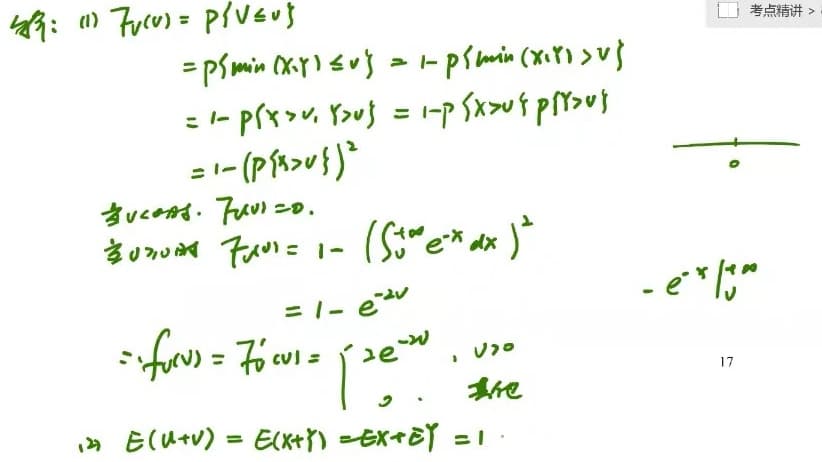 考点精讲 >
解: (1) F_V(v) = P{V ≤ v}
= P{min(X,Y) ≤ v} = 1 - P{min(X,Y) > v}
= 1 - P{X > v, Y > v} = 1 - P{X > v} P{Y > v}
= 1 - (P{X > v})²
0
当 v < 0 时. F_V(v) = 0.
当 v ≥ 0 时 F_V(v) = 1 - (∫_v^{+∞} e^{-x} dx)²
= 1 - e^{-2v}
- e^{-x} |_v^{+∞}
∴ f_V(v) = F_V'(v) = { 2e^{-2v}, v > 0
0. 其他
17
(2) E(U+V) = E(X+Y) = EX + EY = 1.